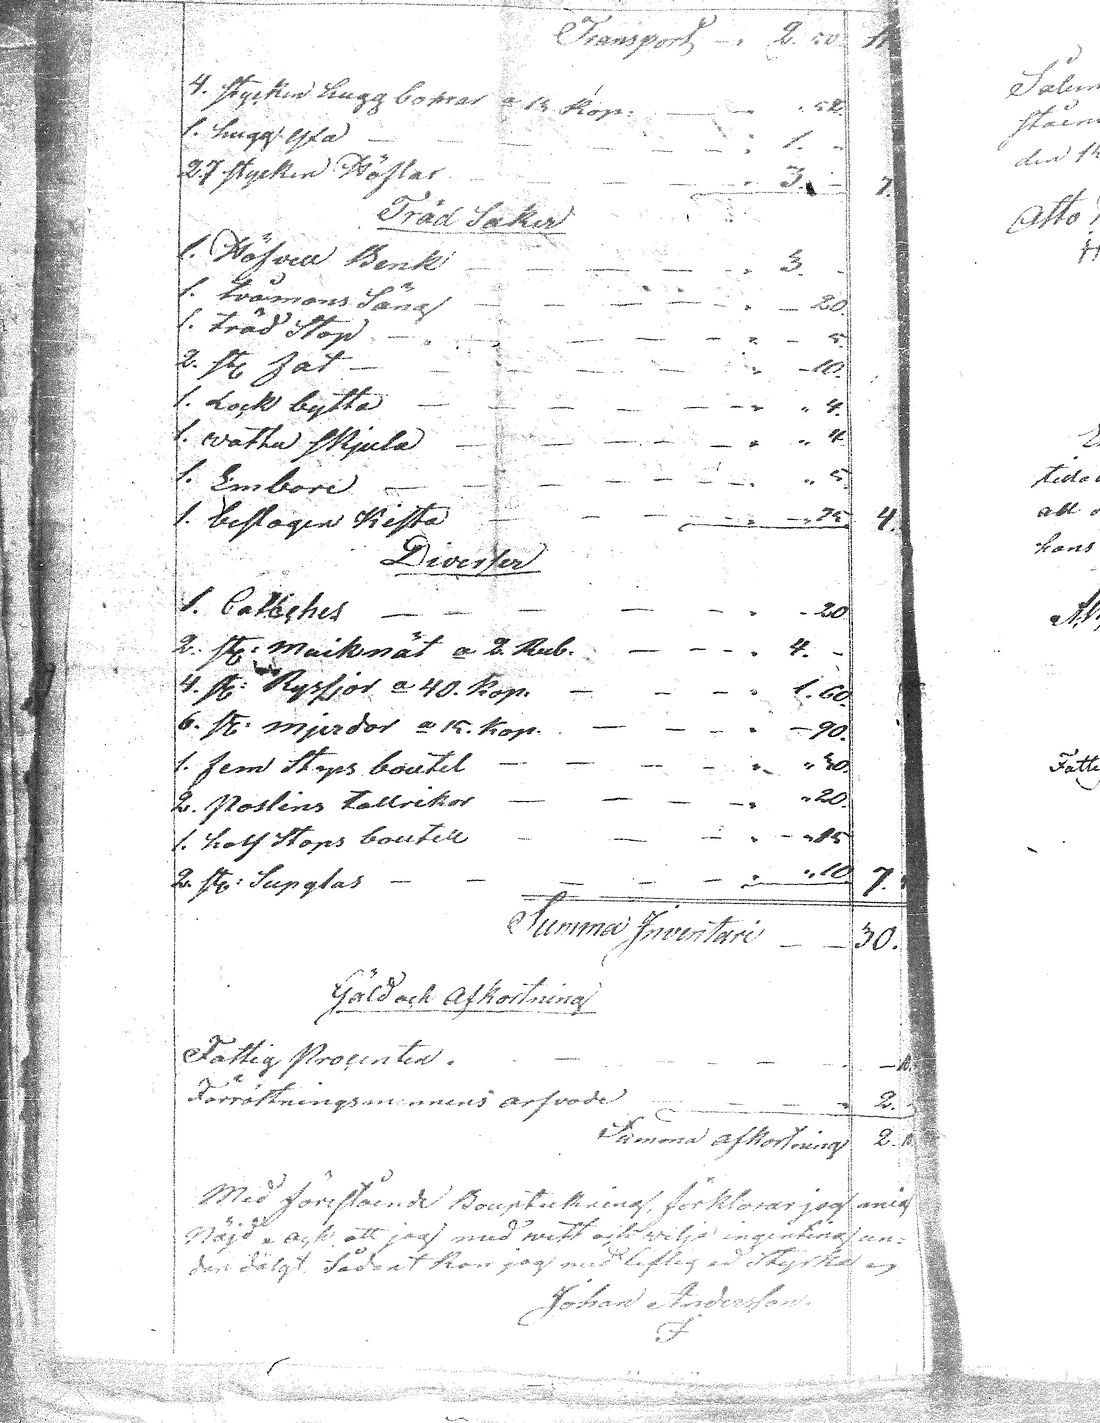 Transport — „ 2. 50. 11
4. stycken hugg borrar a 13 Kop. — — „ 52.
1. hugg yxa — — — — „ 1. -
27 stycken Höflar — — — „ 3. - 7.
Träd Saker
1. Höfvell Benk — — — — „ 3. -
1. tvåmans Säng — — — — „ — 20.
1. träd Stop — — — — „ — 5.
2. st. fat — — — — „ — 10.
1. Lock bytta — — — — „ „ 4.
1. vattu skjula — — — — „ „ 4
1. Embare — — — — „ „ 5.
1. beslagen Kista — — — — „ — 75 4.
Diverser
1. Cateches — — — — „ — 20
2. st: Muiknät a 2. Rub. — — „ 4. -
4. st: Ryssjor a 40. Kop. — — — „ 1. 60.
6. st: mjerdor a 15. Kop. — — — „ — 90.
1. fem Stops boutel — — — — „ „ 30.
2. Poslins tallrikor — — — — „ „ 20.
1. half Stops boutell — — — — „ — 15
2. st: Supglas — — — — „ „ 10 7.
Summa Inventari — — 30.
Gäld och Afkortning
Fattig Procenten. — — — — „ —
Förrättningsmannens arfvode — — — „ 2.
Summa afkortning 2.
Med föreståendе Bouptekning, förklarar jag mig
Nöjd, och att jag med vett och vilja ingenting un=
dan dålgt. Sådant kan jag med liflig ed Styrka
Johan Andersson.